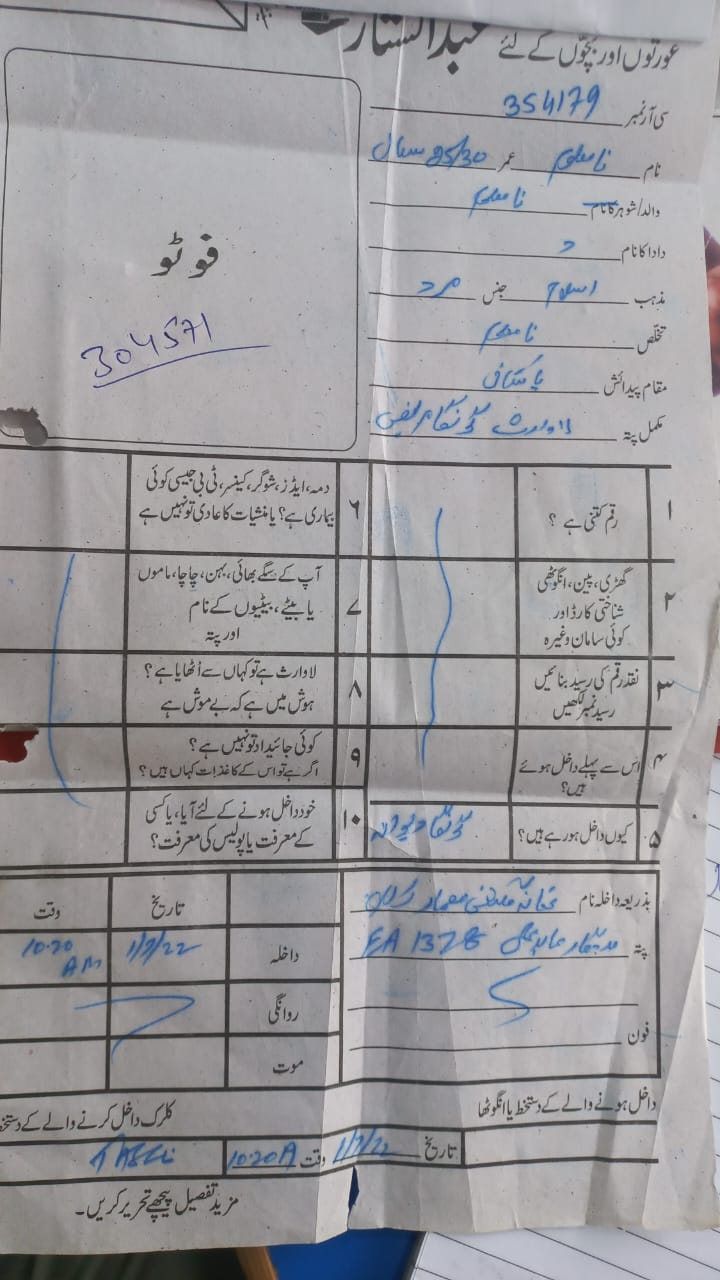 عورتوں اور بچوں کے لئے عبدالستار
سی آر نمبر 354179
نام نامعلوم عمر 25/30 سال
والد/شوہر کا نام نامعلوم
دادا کا نام د
مذہب اسلام جنس مرد
تخلص نامعلوم
مقام پیدائش پاکستانی
مکمل پتہ لاوارث گونگا
فوٹو
304571
۱ رقم کتنی ہے ؟
۲ گھڑی، پین، انگوٹھی
شناختی کارڈ اور
کوئی سامان وغیرہ
۳ نقد رقم کی رسید بنائیں
رسید نمبر لکھیں
۴ اس سے پہلے داخل ہوئے
ہیں؟
۵ کیوں داخل ہورہے ہیں؟ گونگا دیوانہ
۶ دمہ، ایڈز، شوگر، کینسر، ٹی بی جیسی کوئی
بیماری ہے؟ یا منشیات کا عادی تو نہیں ہے
۷ آپ کے سگے بھائی، بہن، چاچا، ماموں
یا بیٹے، بیٹیوں کے نام
اور پتہ
۸ لاوارث ہے تو کہاں سے اُٹھایا ہے ؟
ہوش میں ہے کہ بے ہوش ہے
۹ کوئی جائیداد تو نہیں ہے ؟
اگر ہے تو اس کے کاغذات کہاں ہیں ؟
۱۰ خود داخل ہونے کے لئے آیا، یا کسی
کے معرفت یا پولیس کی معرفت؟
بذریعہ داخلہ نام تھانہ گلشن معمار
پتہ EA 1378
فون
تاریخ وقت
داخلہ 1/7/22 10:20 AM
روانگی
موت
داخل ہونے والے کے دستخط یا انگوٹھا
کلرک داخل کرنے والے کے دستخط
تاریخ 1/7/22 وقت 10:20 A
مزید تفصیل پیچھے تحریر کریں۔